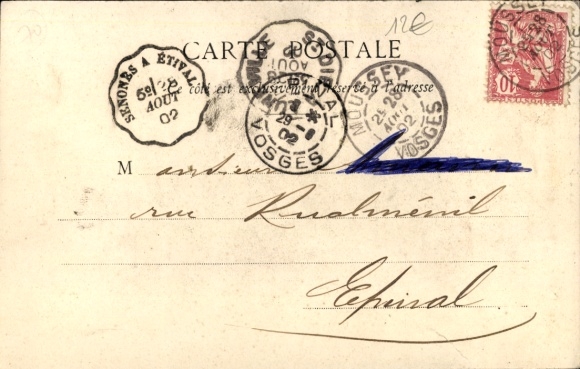 12€
CARTE POSTALE
Ce côté est exclusivement réservé à l'adresse
SENONES A ÉTIVAL
AOUT
02
EPINAL
29-8
02
VOSGES
MOUSSEY
2E 28
AOUT
02
VOSGES
MOUSSEY
28
10
M
rue Rualménil
Epinal